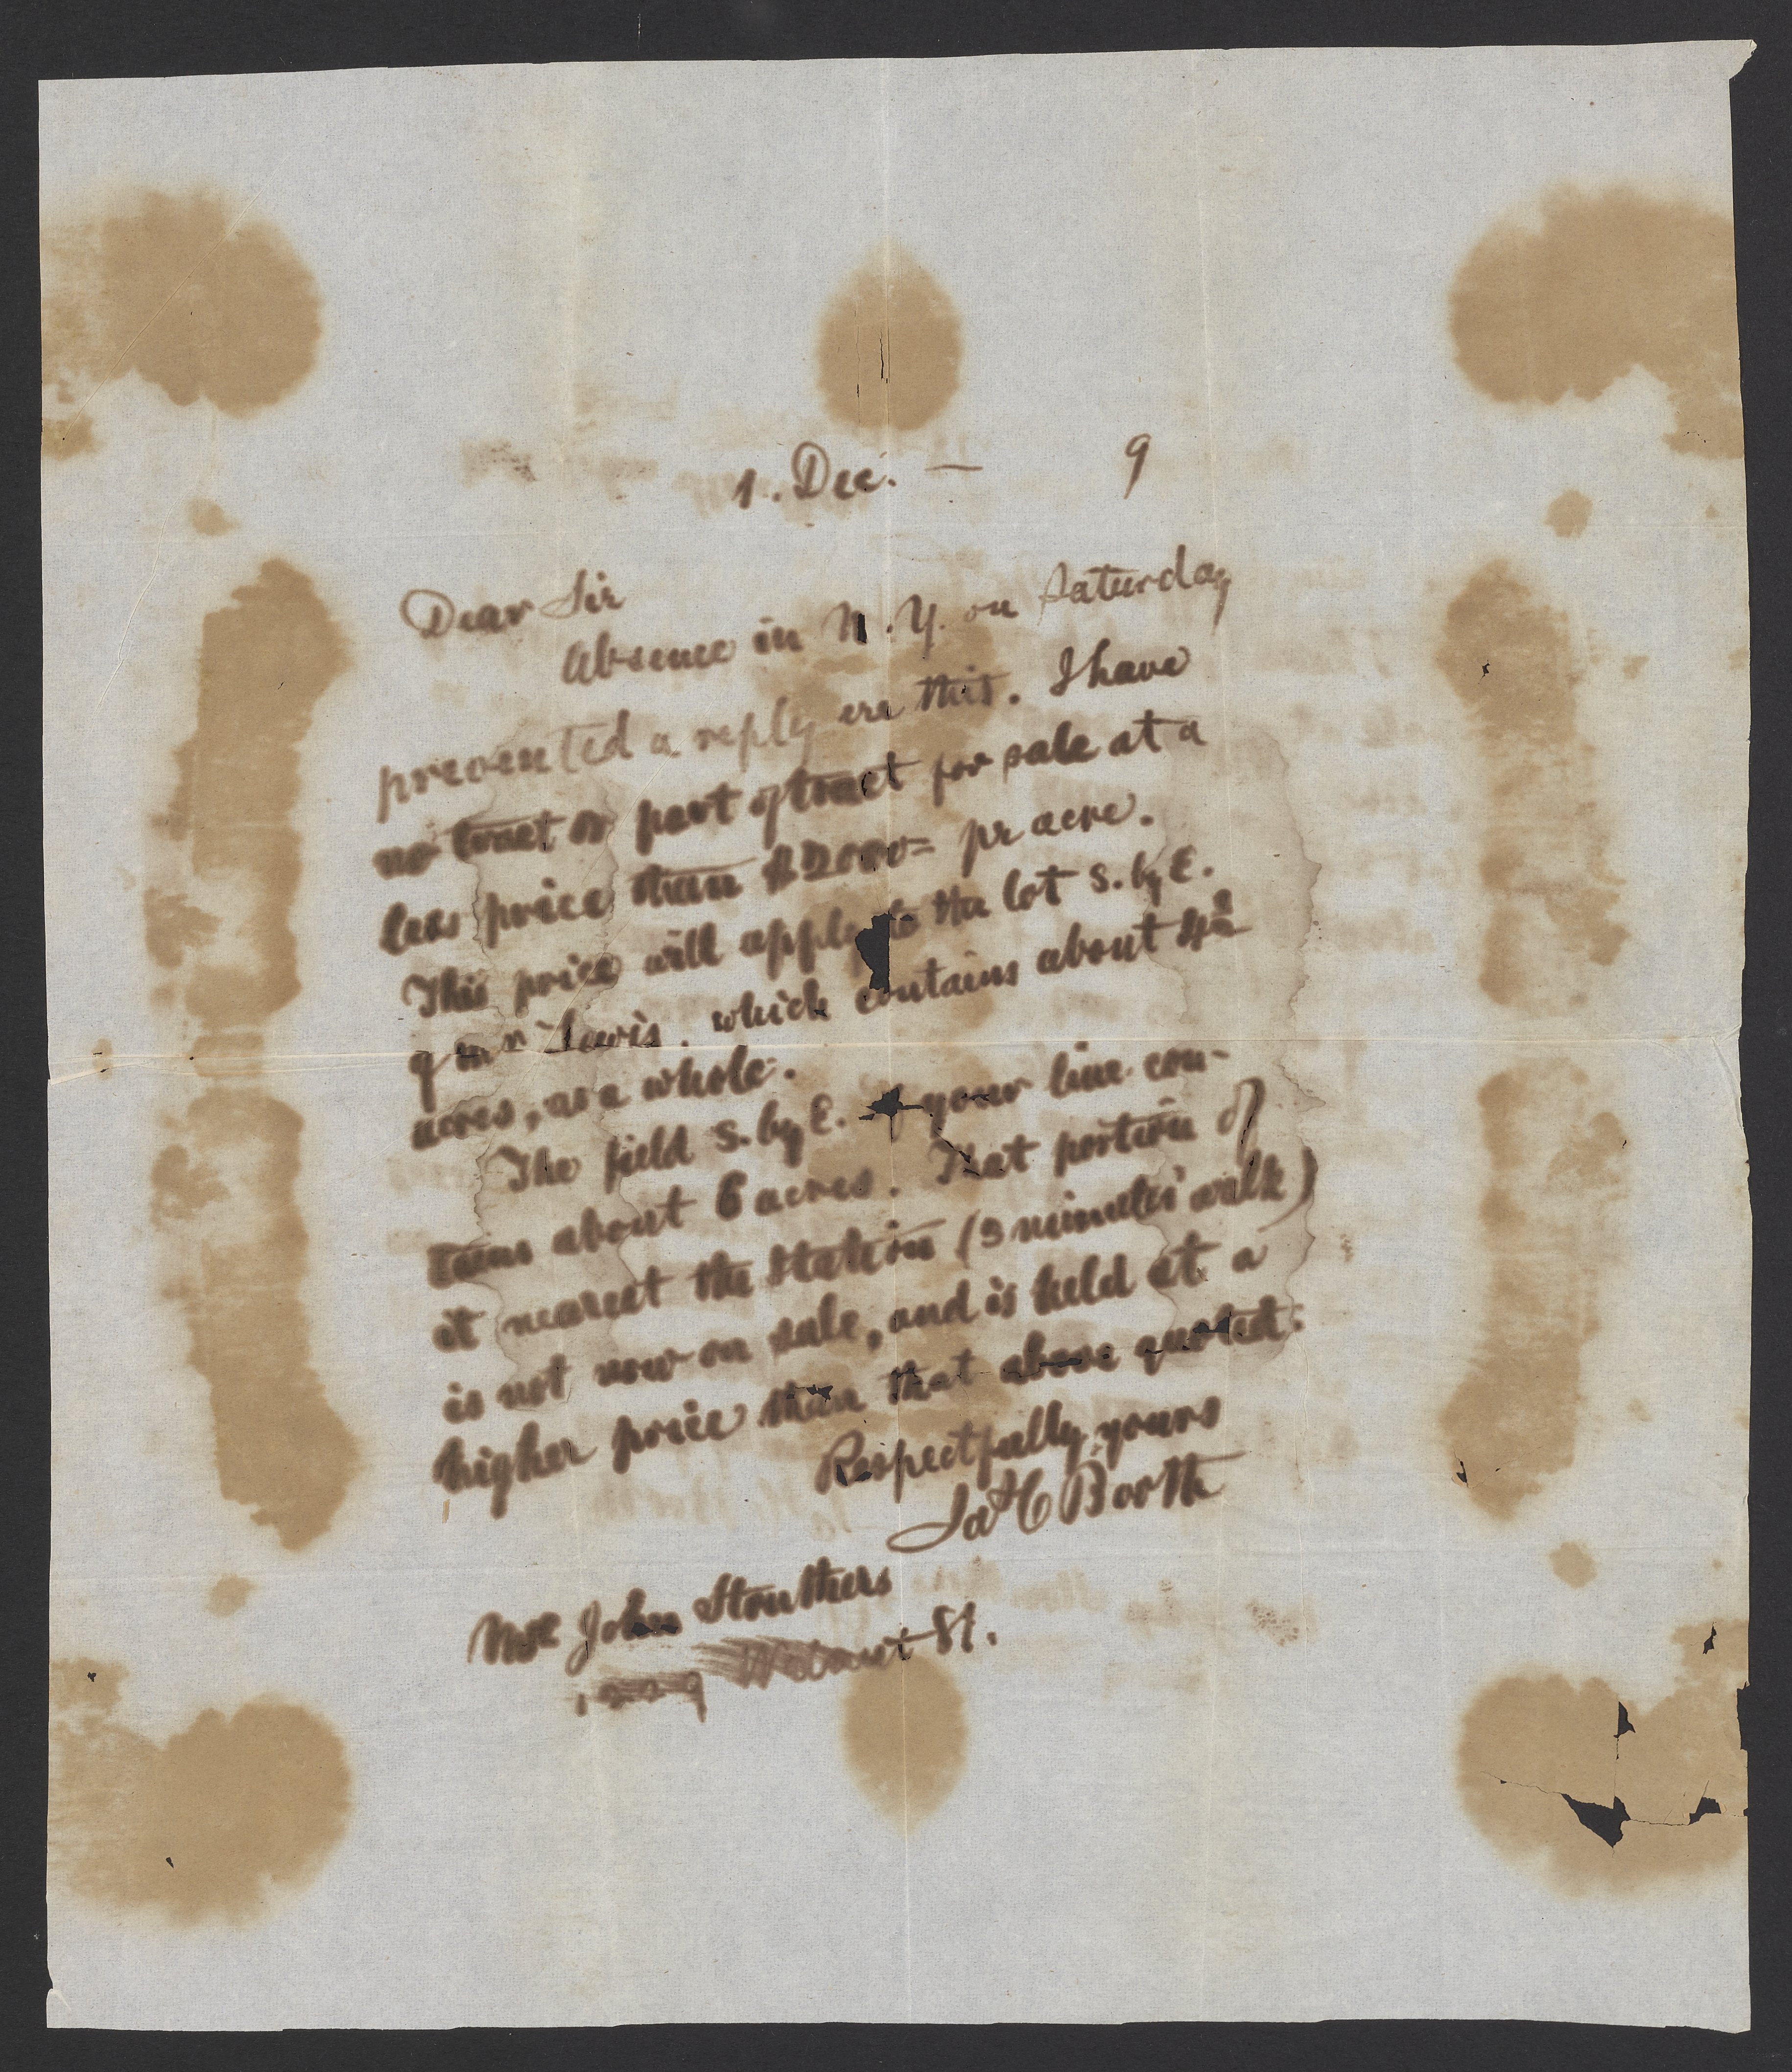 1. Dec. — 9
Dear Sir
Absence in N. Y. on Saturday
prevented a reply ere this. I have
no tract or part of tract for sale at a
less price than $2000= pr acre.
This price will apply to the lot S. by E.
of Mr Lewis, which contains about
acres, as a whole.
The field S. by E. of your line con-
tains about 6 acres. That portion of
it nearest the station (3 minutes' walk)
is not now on sale, and is held at a
higher price than that above quoted.
Respectfully yours
Jas C Booth
Mr John Struthers
1229 Walnut St.